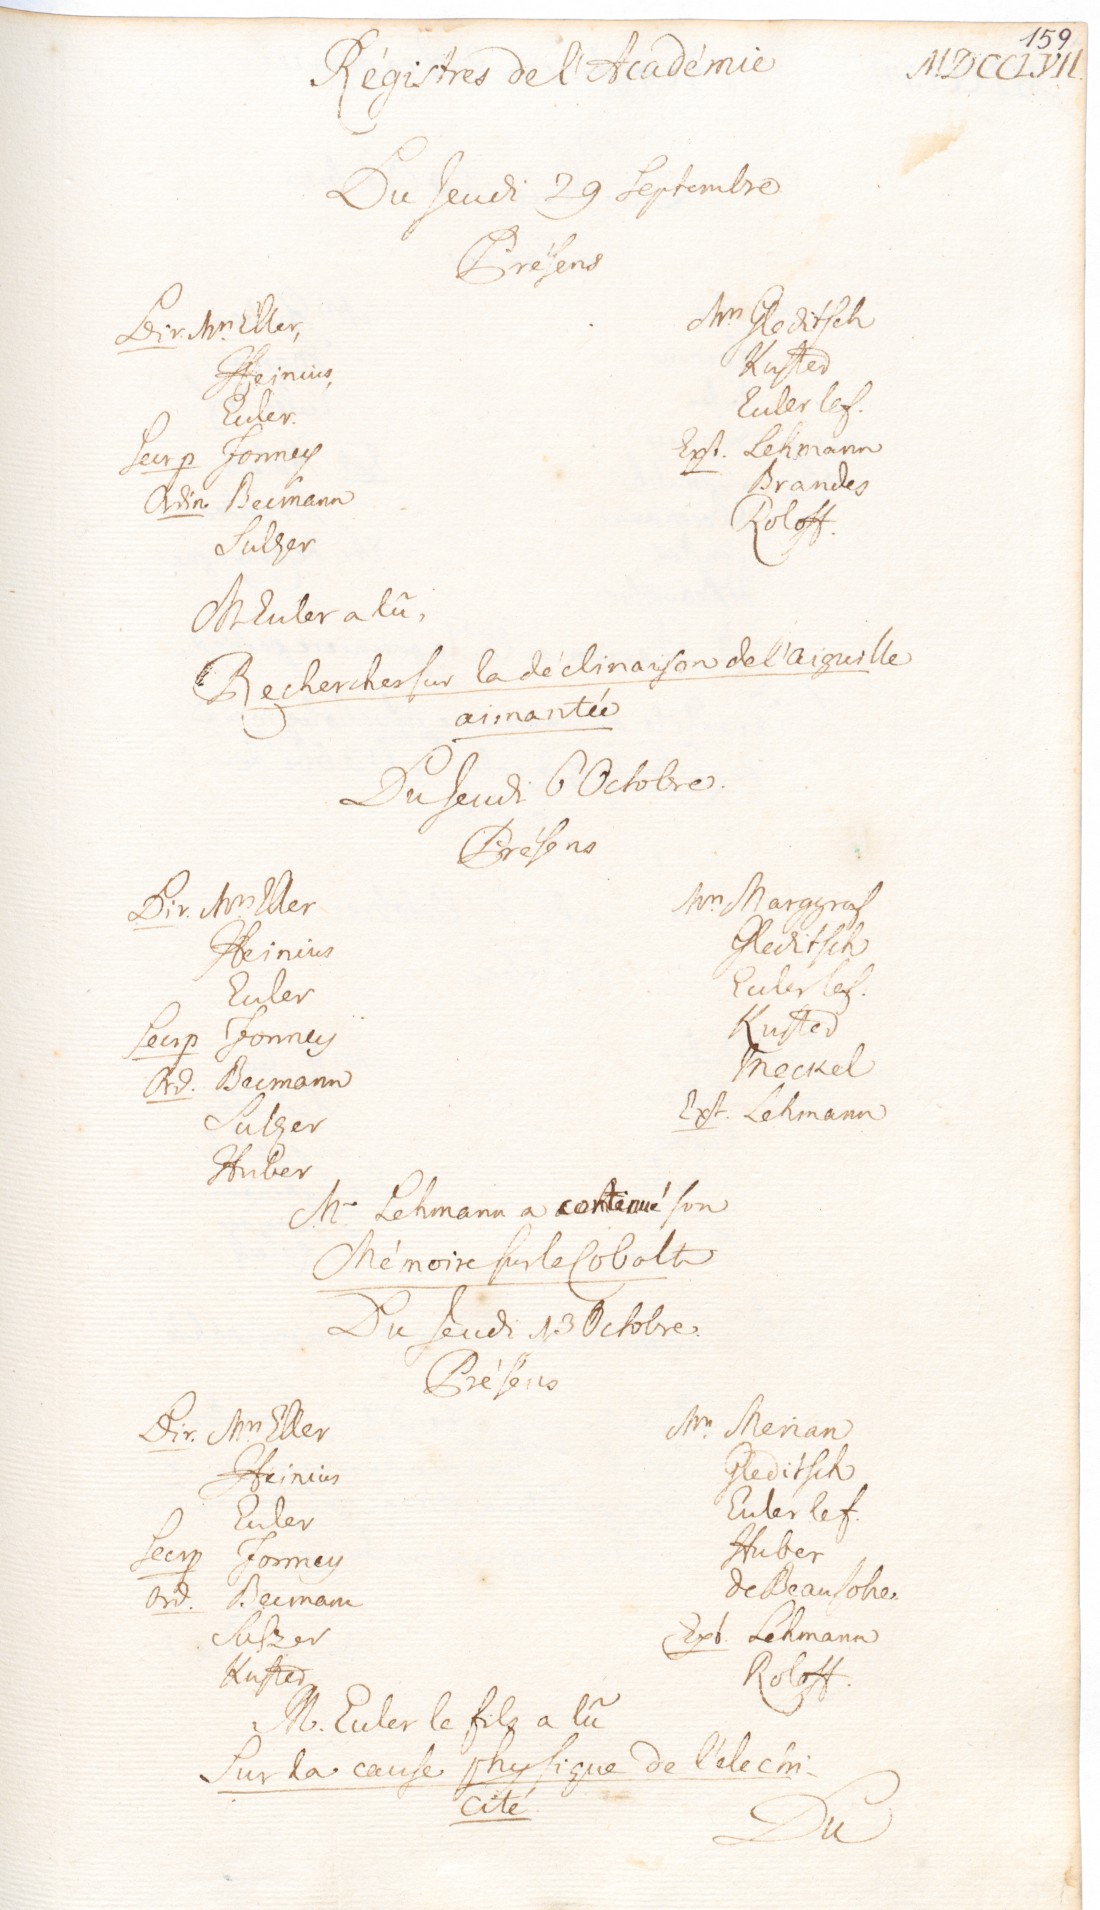 159
Régistres de l'Académie MDCCLVII.
Du Jeudi 29 Septembre
Présens
Dir. Mrs Eller,
Heinius,
Euler.
Secr p Formey
Ordin. Becmann
Sulzer
Mrs Gleditsch
Kusted
Euler le f.
Ext. Lehmann
Brandes
Roloff.
M. Euler a lû,
Recherches sur la déclinaison de l'aiguille
aimantée
Du Jeudi 6 Octobre.
Présens
Dir. Mrs Eller
Heinius
Euler
Secr p Formey
Ord. Becmann
Sulzer
Huber
Mrs Marggraf
Gleditsch
Euler le f.
Kusted
Meckel
Ext. Lehmann
Mr Lehmann a continué son
Mémoire sur le Cobolt
Du Jeudi 13 Octobre.
Présens
Dir. Mrs Eller
Heinius
Euler
Secr p Formey
Ord. Becmann
Sulzer
Kusted
Mrs Merian
Gleditsch
Euler le f.
Huber
de Beausobre
Ext. Lehmann
Roloff.
M. Euler le fils a lû
Sur la cause physique de l'électri-
cité
Du